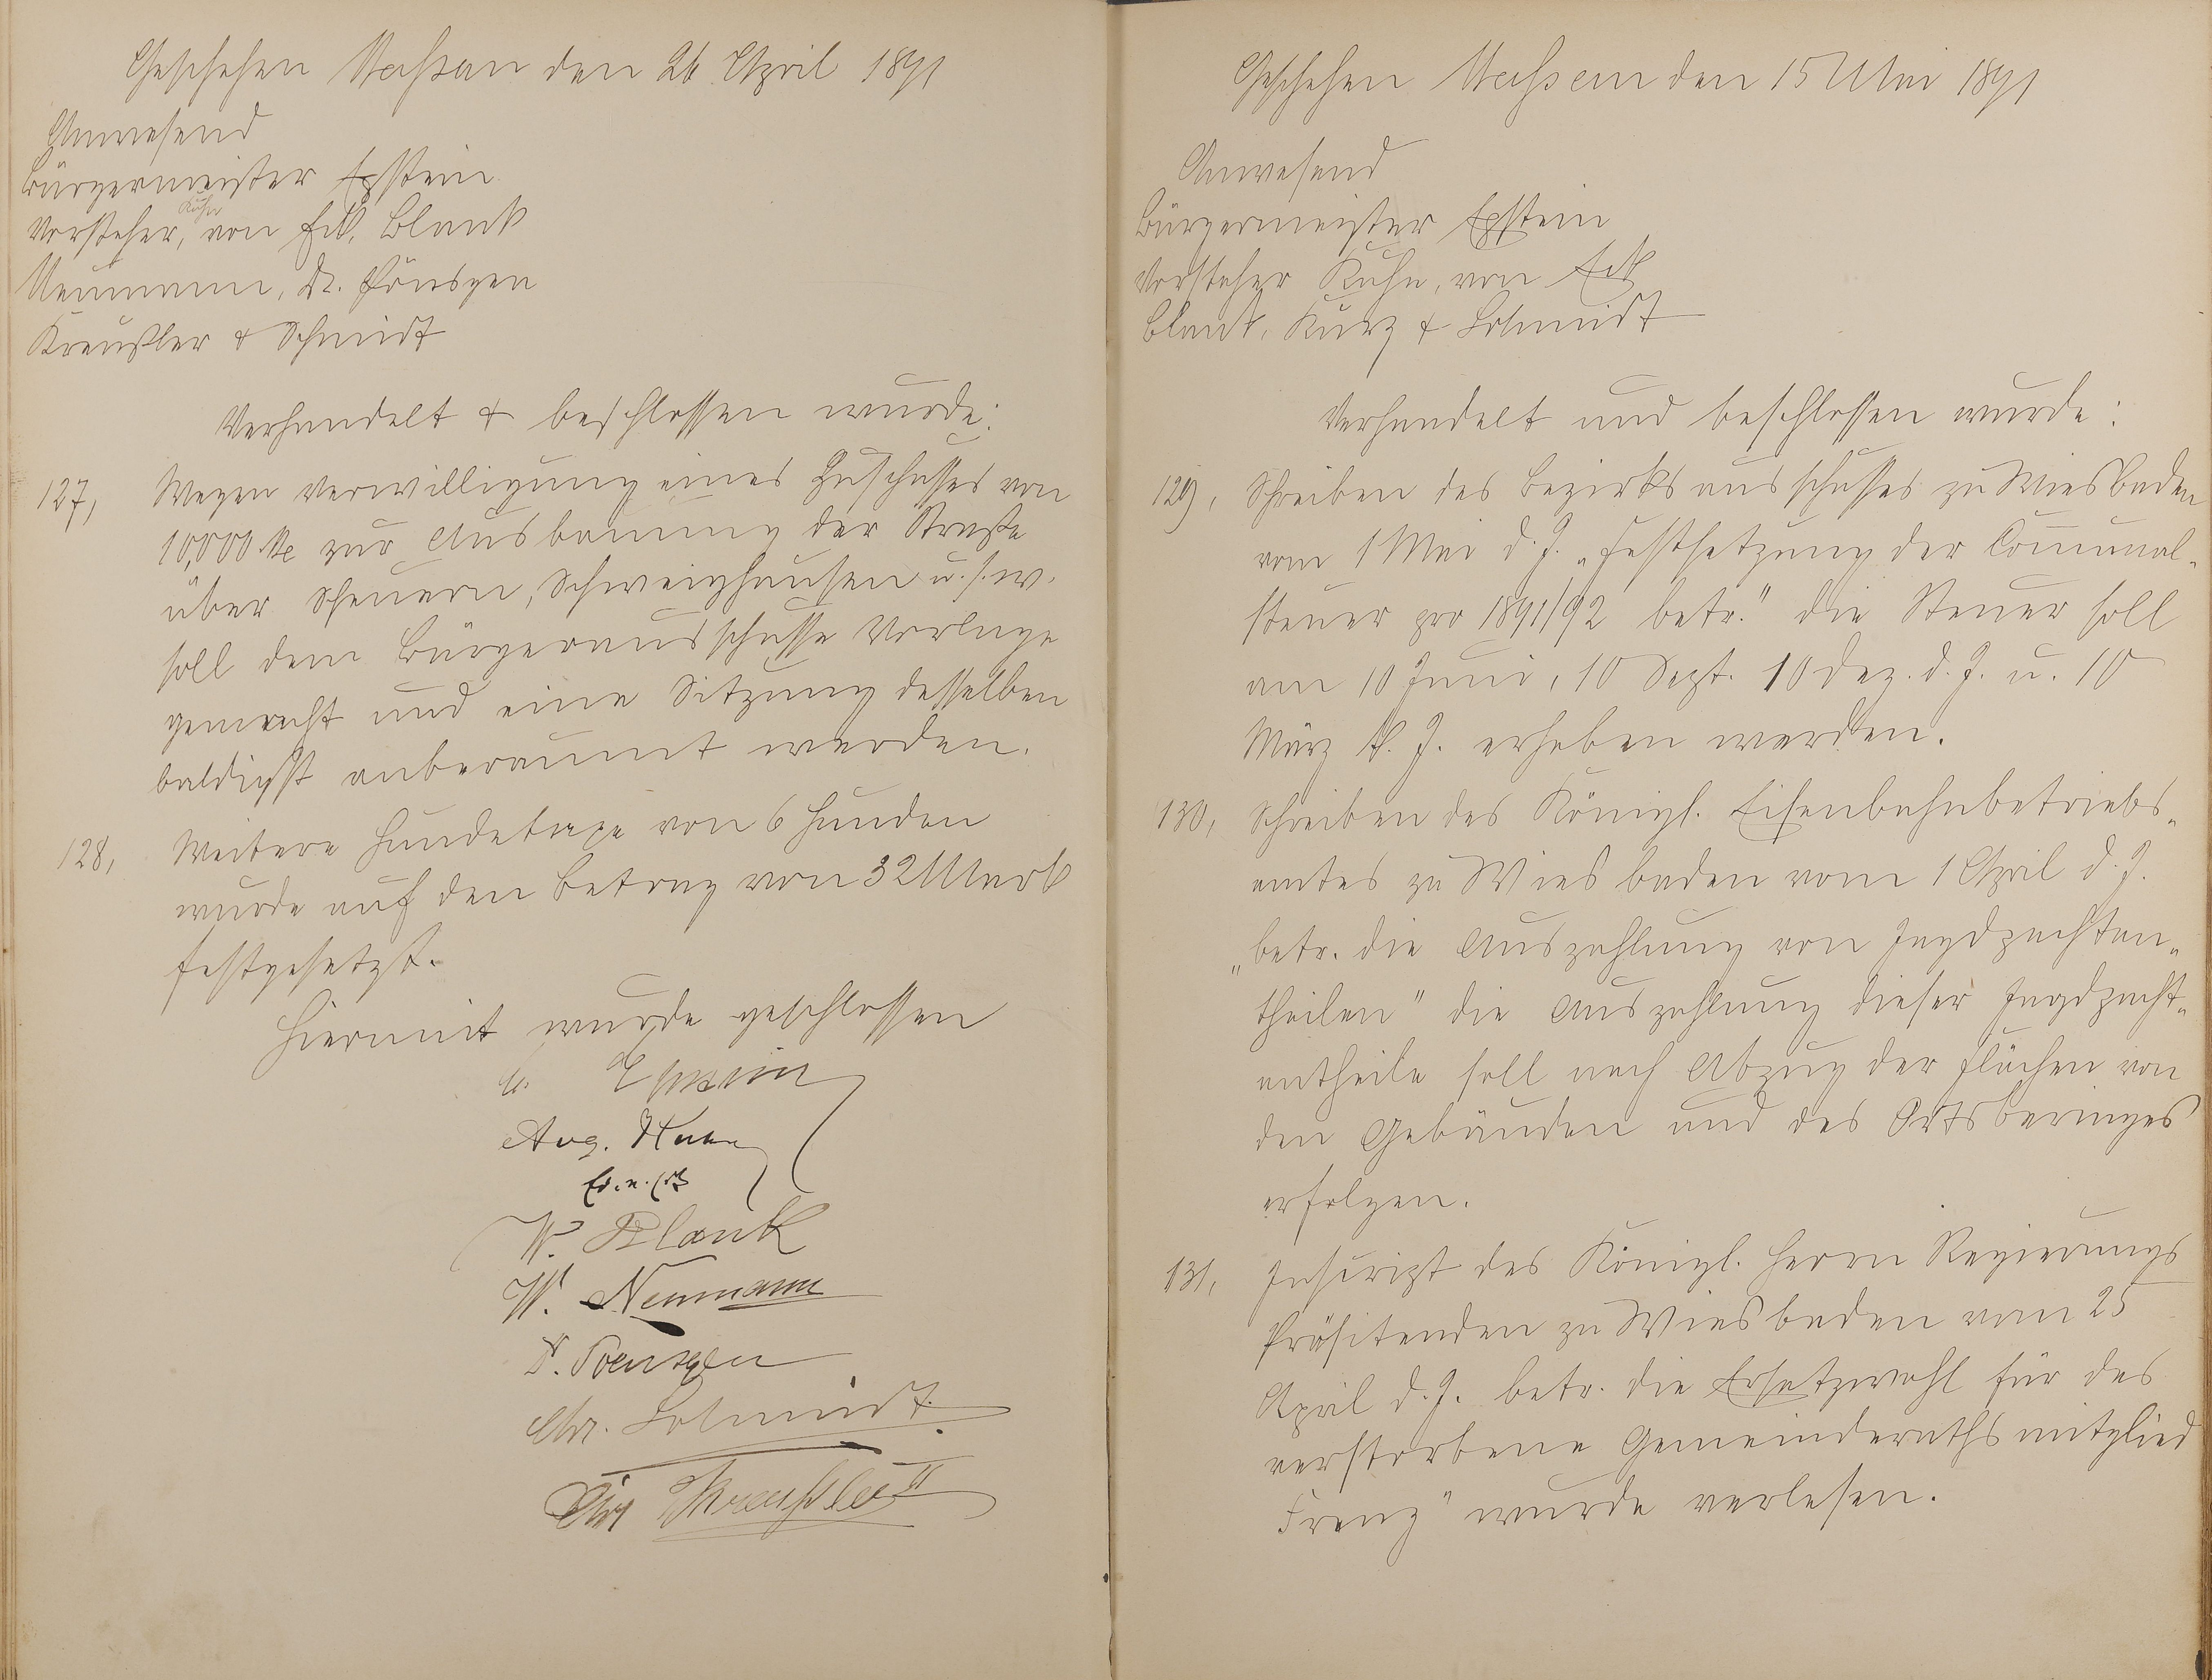 Geschehen Nassau den 26 April 1891
Anwesend
Bürgermeister Epstein
Kuhn
Vorsteher, von Eck, Blank
Neumann, Dr. Pönsgen
Kreußler & Schmidt
Verhandelt & beschlossen wurde:
127, Wegen Verwilligung eines Zuschusses von
10,000 M zur Ausbauung der Straße
über Scheuern, Schweighausen u. s. w.
soll dem Bürgerausschusse Vorlage
gemacht und eine Sitzung desselben
baldigst anberaumt werden.
128, Weitere Hundetaxe von 6 Hunden
wurde auf den Betrag von 32 Mark
festgesetzt.
Hiermit wurde geschlossen
Epstein
Aug. Kuhn
Ed. v. Eck
W. Blank
W. Neumann
Dr. Poensgen
Chr. Schmidt.
Chr Kreußler II
Geschehen Nassau den 15 Mai 1891
Anwesend
Bürgermeister Epstein
Vorsteher Kuhn, von Eck
Blank, Kurz & Schmidt
Verhandelt und beschlossen wurde:
129, Schreiben des Bezirksausschusses zu Wiesbaden
vom 1 Mai d. J. „Festsetzung der Com̅unal-
steuer pro 1891/92 betr." die Steuer soll
am 10 Juni, 10 Sept. 10 Dez. d. J. u. 10
März k. J. erhoben werden.
130, Schreiben des Königl. Eisenbahnbetriebs-
amtes zu Wiesbaden vom 1 April d. J.
„betr. die Auszahlung von Jagdpachtan-
theilen" die Auszahlung dieser Jagdpacht-
antheile soll nach Abzug der Flächen von
den Gebäuden und des Ortsberinges
erfolgen.
131, Inscript des Königl. Herrn Regierungs
Präsitenden zu Wiesbaden vom 25
April d. J. betr. die Ersatzwahl für des
verstorbene Gemeinderathsmitglied
Frenz" wurde verlesen.